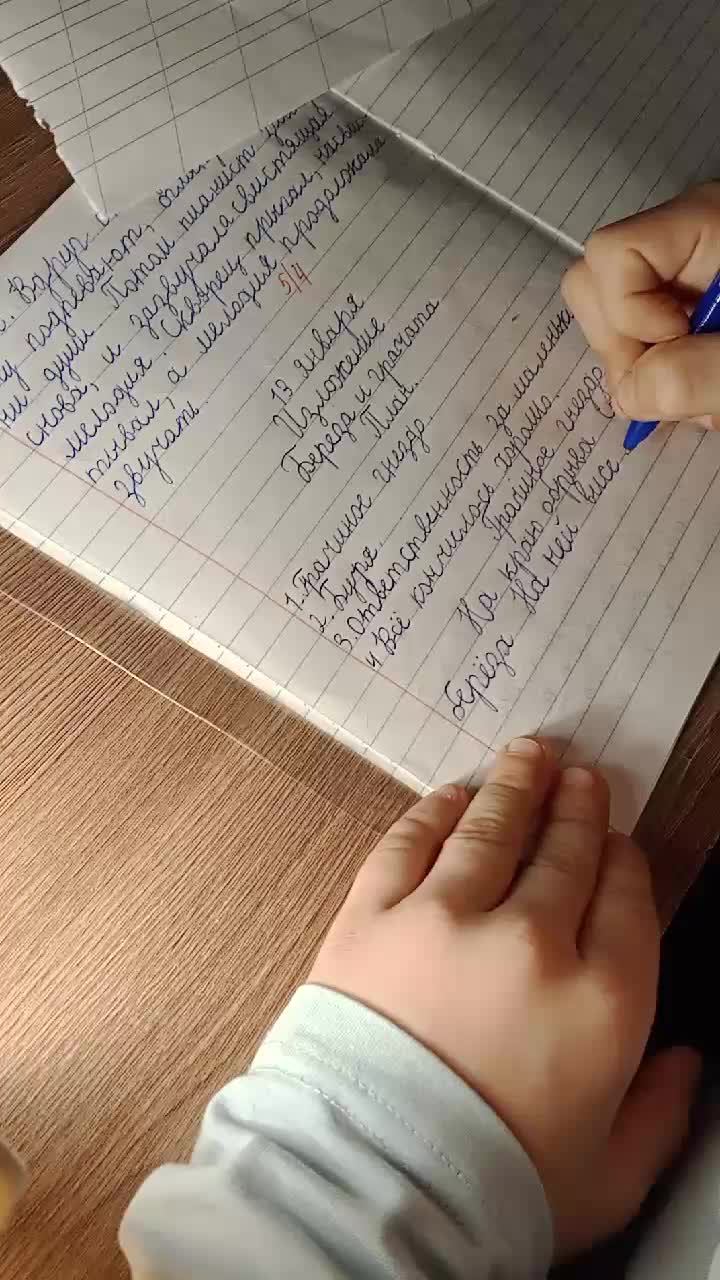 Вдруг
подпевают,
души. Потом пианист
снова, и зазвучала свистящая
мелодия. Скворец прыгал,
тывал, а мелодия продолжала
звучать.
5/4
13 января
Изложение
Береза и грачата
План.
1. Грачиное гнездо.
2. Буря.
3. Ответственность за
4 Всё кончилось хорошо.
Грачиное гнездо
На краю оврага
берёза На ней